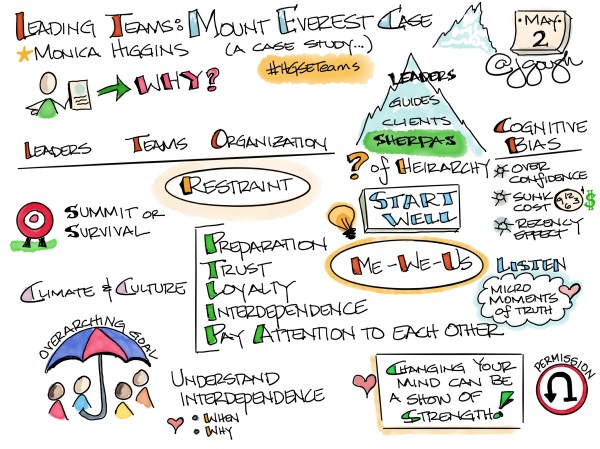 LEADING TEAMS: MOUNT EVEREST CASE
MONICA HIGGINS
(A CASE STUDY...)
#HGSETEAMS
MAY
2
@jgough
WHY?
LEADERS
GUIDES
CLIENTS
SHERPAS
? OF HEIRARCHY
LEADERS TEAMS ORGANIZATION
COGNITIVE
BIAS
OVER
CONFIDENCE
SUNK
COST
$
RECENCY
EFFECT
RESTRAINT
START
WELL
SUMMIT OR
SURVIVAL
PREPARATION
TRUST
LOYALTY
INTERDEPENDENCE
PAY ATTENTION TO EACH OTHER
ME-WE-US
LISTEN
MICRO
MOMENTS
OF TRUTH
CLIMATE & CULTURE
OVERARCHING GOAL
UNDERSTAND
INTERDEPENDENCE
• WHEN
• WHY
CHANGING YOUR
MIND CAN BE
A SHOW OF
STRENGTH!
PERMISSION